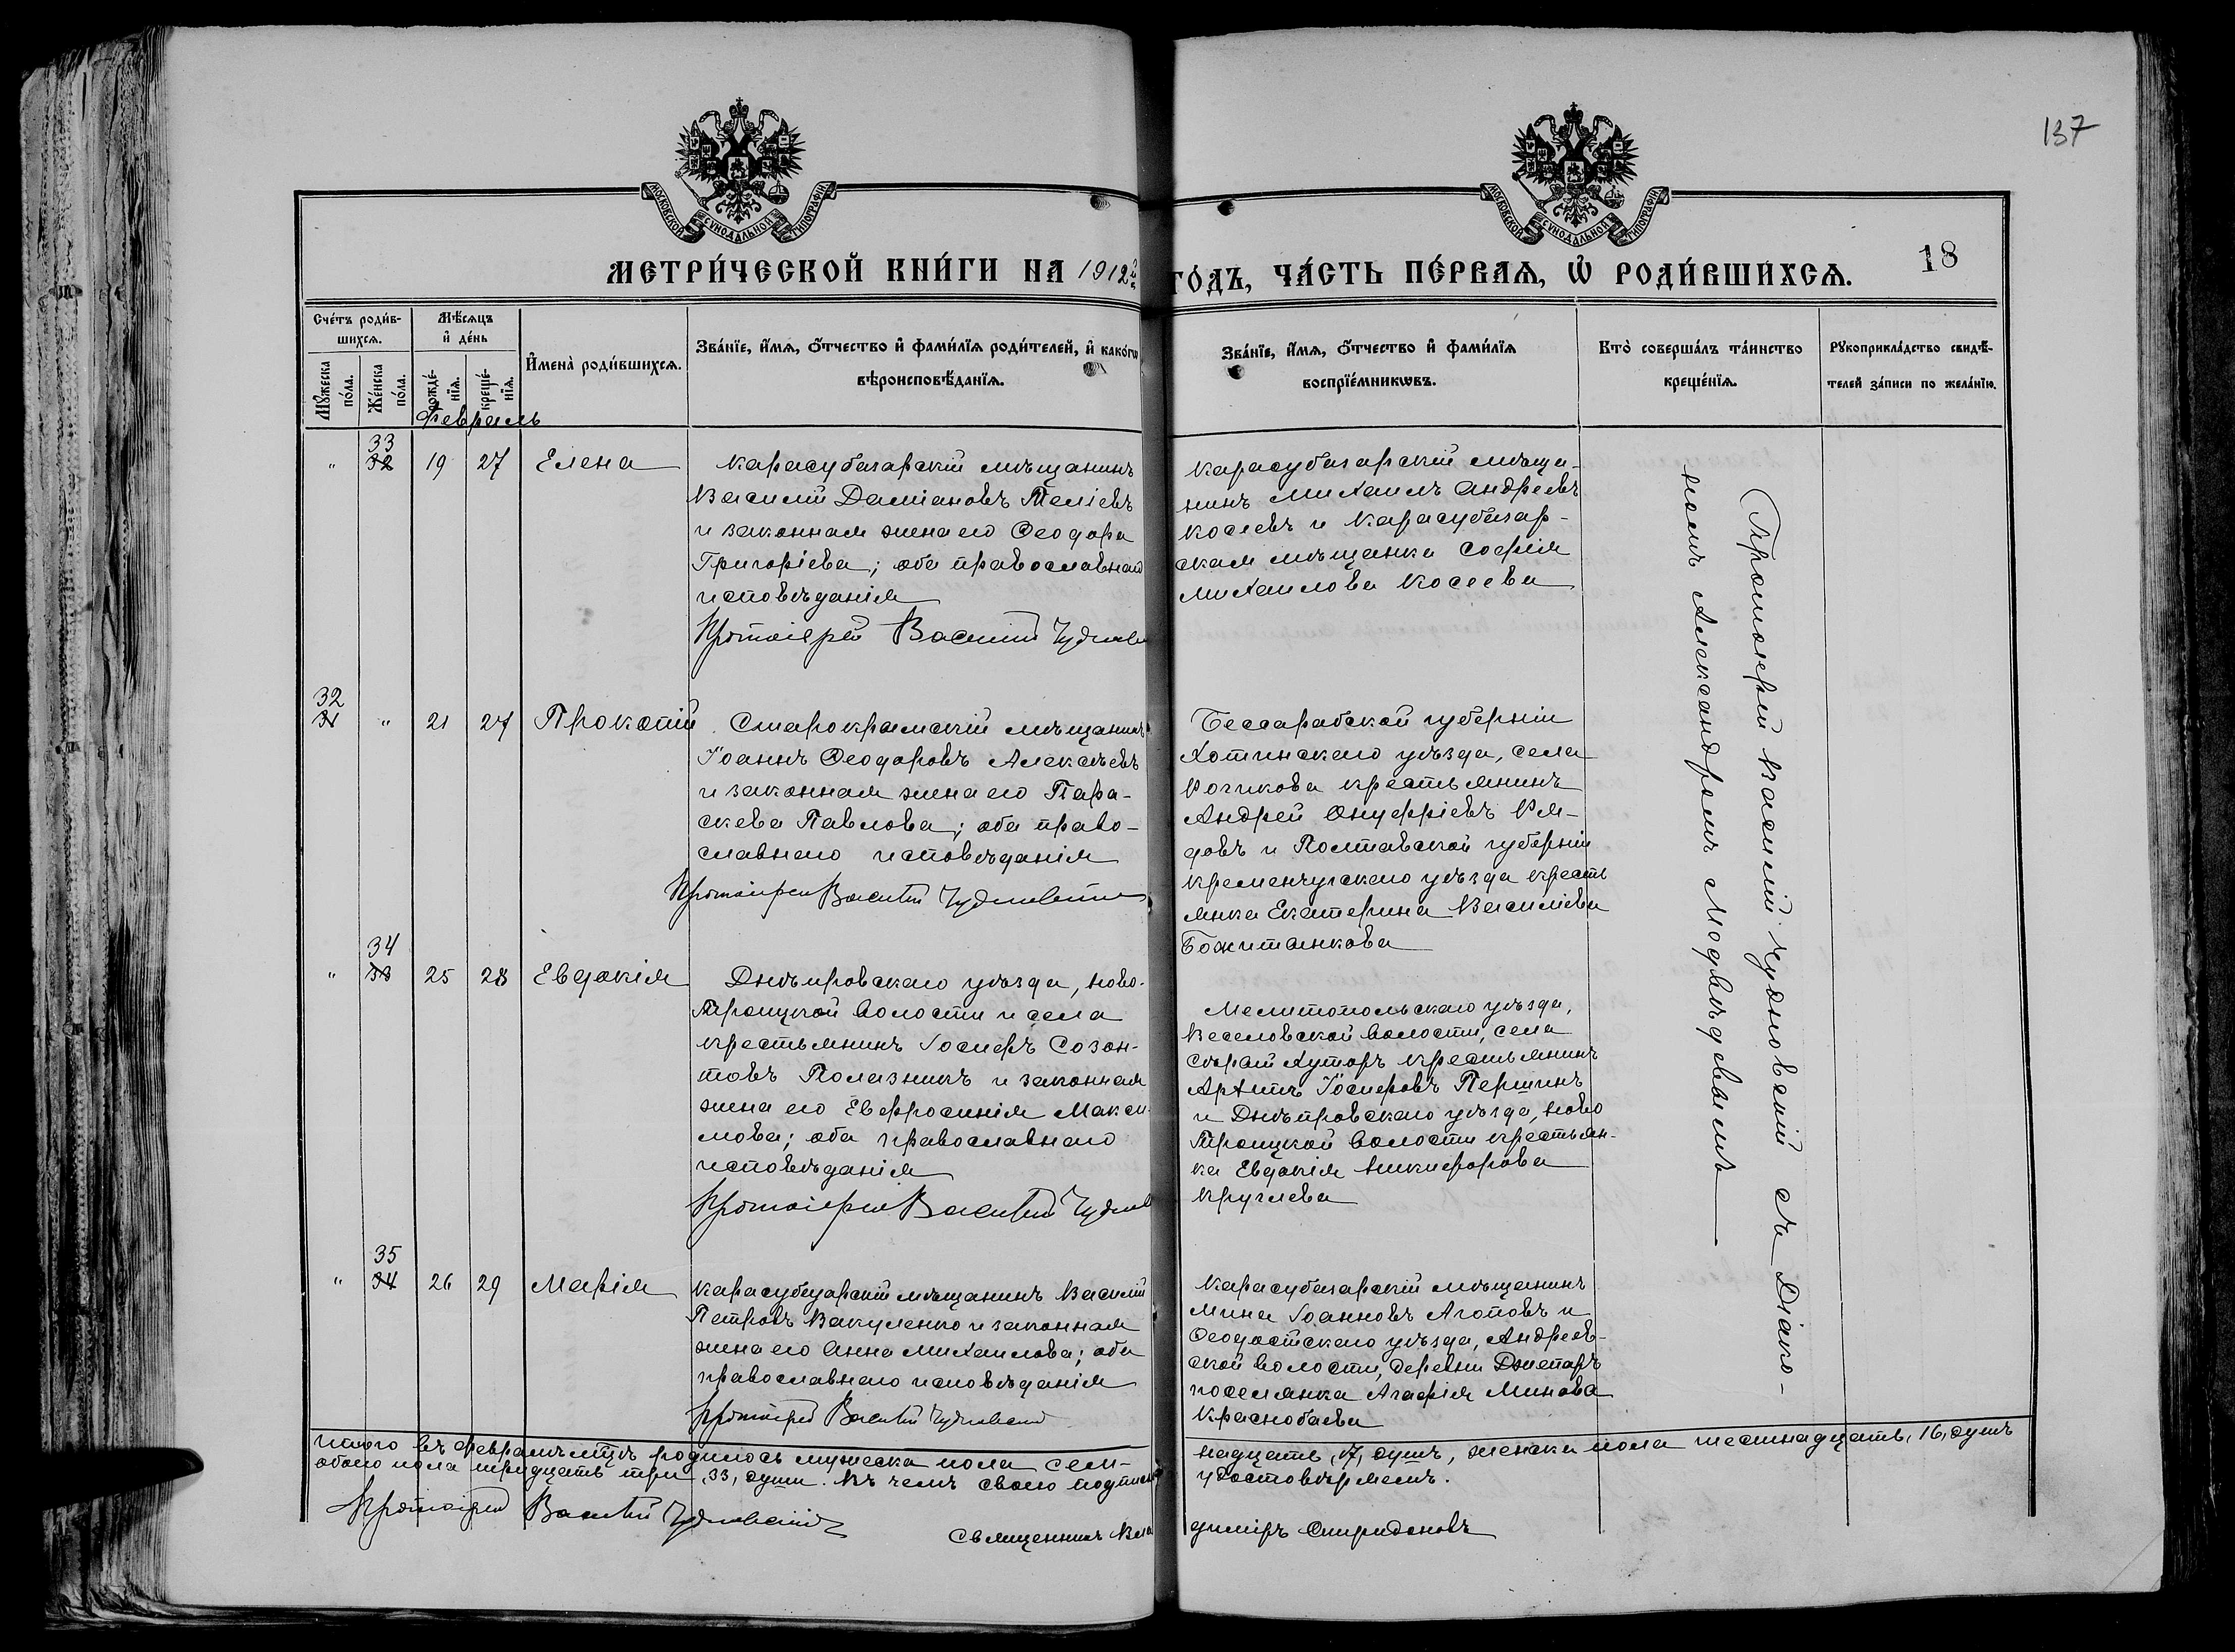 137
МОСКОВСКОЙ СУНОДАЛЬНОЙ ТИПОГРАФІИ
МОСКОВСКОЙ СУНОДАЛЬНОЙ ТИПОГРАФІИ
МЕТРИ́ЧЕСКОЙ КНИ́ГИ НА 1912й
ГО́ДЪ, ЧА́СТЬ ПЕ́РВАѦ, Ѡ РОДИ́ВШИХСѦ.
18
Сче́тъ роди́в-
шихсѧ.
Мꙋ́жеска
по́ла.
Же́нска
по́ла.
Мѣ́сѧцъ
и҆ де́нь
рожде́-
нїѧ.
креще́-
нїѧ.
Февраль
И҆мена̀ роди́вшихсѧ.
Зва́нїе, и҆́мѧ, ѻ҆́тчество и҆ фами́лїѧ роди́телей, и҆ како́гѡ
вѣроисповѣ́данїѧ.
Зва́нїе, и҆́мѧ, ѻ҆́тчество и҆ фами́лїѧ
воспрїе́мникѡвъ.
Кто̀ соверша́лъ та́инство
креще́нїѧ.
Рꙋкоприкла́дство свидѣ́-
телей за́писи по жела́нїю.
33
„ 32 19 27 Елена
Карасубазарскій мѣщанинъ
Василій Даміановъ Теліевъ
и законная жена его Ѳеодора
Григоріева; оба православнаго
исповѣданія
Протоіерей Василій Чудновс
Карасубазарскій мѣща-
нинъ Михаилъ Андреевъ
Косеевъ и Карасубазар-
ская мѣщанка Софія
Михаилова Косеева
32
31 „ 21 27 Прокопій
Старокрымскій мѣщанинъ
Іоаннъ Ѳеодоровъ Алексѣевъ
и законная жена его Пара-
скева Павлова; оба право-
славнаго исповѣданія
Протоіерей Василій Чудновскій
Бессарабской губерніи
Хотинскаго уѣзда, села
Рогикова крестьянинъ
Андрей Онуфріевъ Ря-
довъ и Полтавской губерніи
Кременчугскаго уѣзда кресть
янка Екатерина Василіева
Божитанкова
34
„ 33 25 28 Евдокія
Днѣпровскаго уѣзда, Ново-
Троицкой волости и села
крестьянинъ Іосифъ Созон-
товъ Полазникъ и законная
жена его Евфросинія Макси-
мова; оба православнаго
исповѣданія
Протоіерей Василій Чуднов
Мелитопольскаго уѣзда,
Веселовской волости, села
Старый Хуторъ крестьянинъ
Архипъ Іосифовъ Першинъ
и Днѣпровскаго уѣзда, Ново
Троицкой волости крестьян-
ка Евдокія Никифорова
Круглева
35
„ 34 26 29 Марія
Карасубазарскій мѣщанинъ Василій
Петровъ Вакуленко и законная
жена его Анна Михаилова; оба
православнаго исповѣданія
Протоіерей Василій Чудновскій
Карасубазарскій мѣщанинъ
Мина Іоанновъ Агоповъ и
Ѳеодосійскаго уѣзда, Андреев-
ской волости, деревни Джепаръ
поселянка Агафія Минова
Краснобаева
Протоіерей Василій Чудновскій съ Діако-
номъ Александромъ Модвѣдевымъ
Итого въ Февралѣ м-цѣ родилось мужеска пола сем-
надцать, 17, душъ, женска пола шестнадцать, 16, душъ
обоего пола тридцать три, 33, души. Въ чемъ своею подписью
удостовѣряемъ.
Протоіерей Василій Чудновскій
Священникъ Вла
димiръ Спиридоновъ